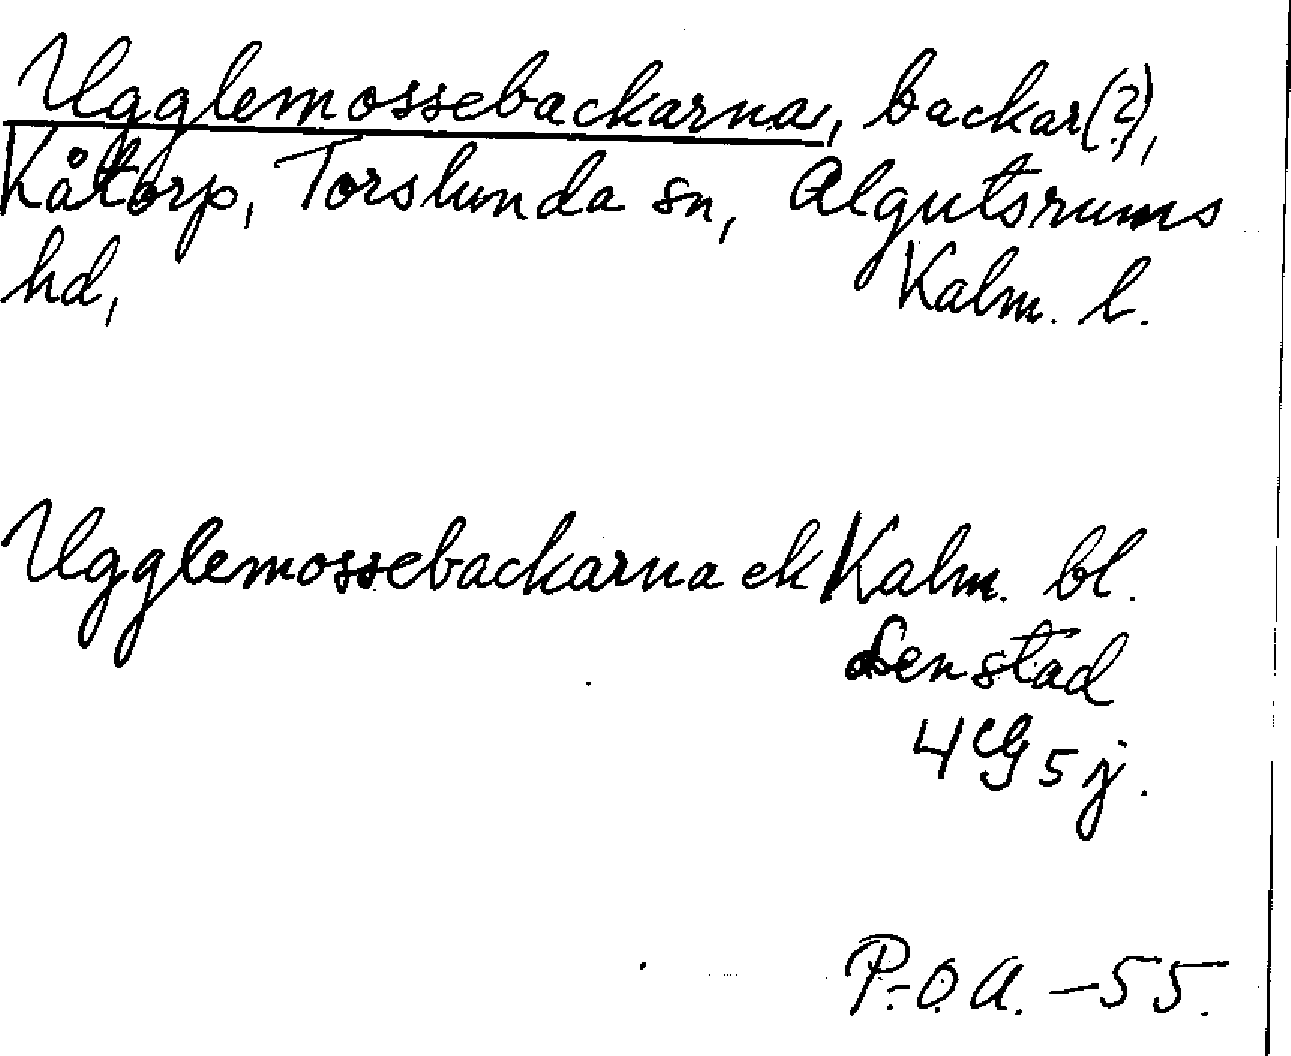 Ugglemossebackarna, backar(?),
Kåtorp, Torslunda sn, Algutsrums
hd, Kalm. l.
Ugglemossebackarna ek Kalm. bl.
Lenstad
4 G 5 j.
P.-O. A. -55.